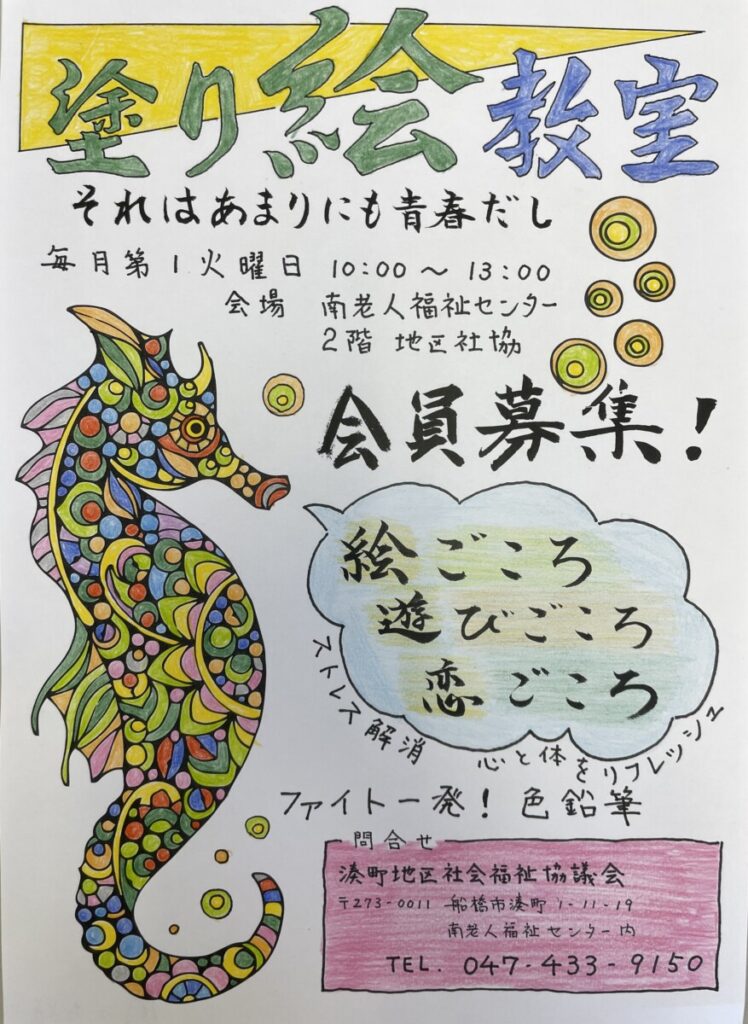 塗り絵教室
それはあまりにも青春だし
毎月第1火曜日 10:00～13:00
会場 南老人福祉センター
2階 地区社協
会員募集!
絵ごころ
遊びごころ
恋ごころ
ストレス解消
心と体をリフレッシュ
ファイト一発! 色鉛筆
問合せ
湊町地区社会福祉協議会
〒273-0011 船橋市湊町1-11-19
南老人福祉センター内
TEL. 047-433-9150